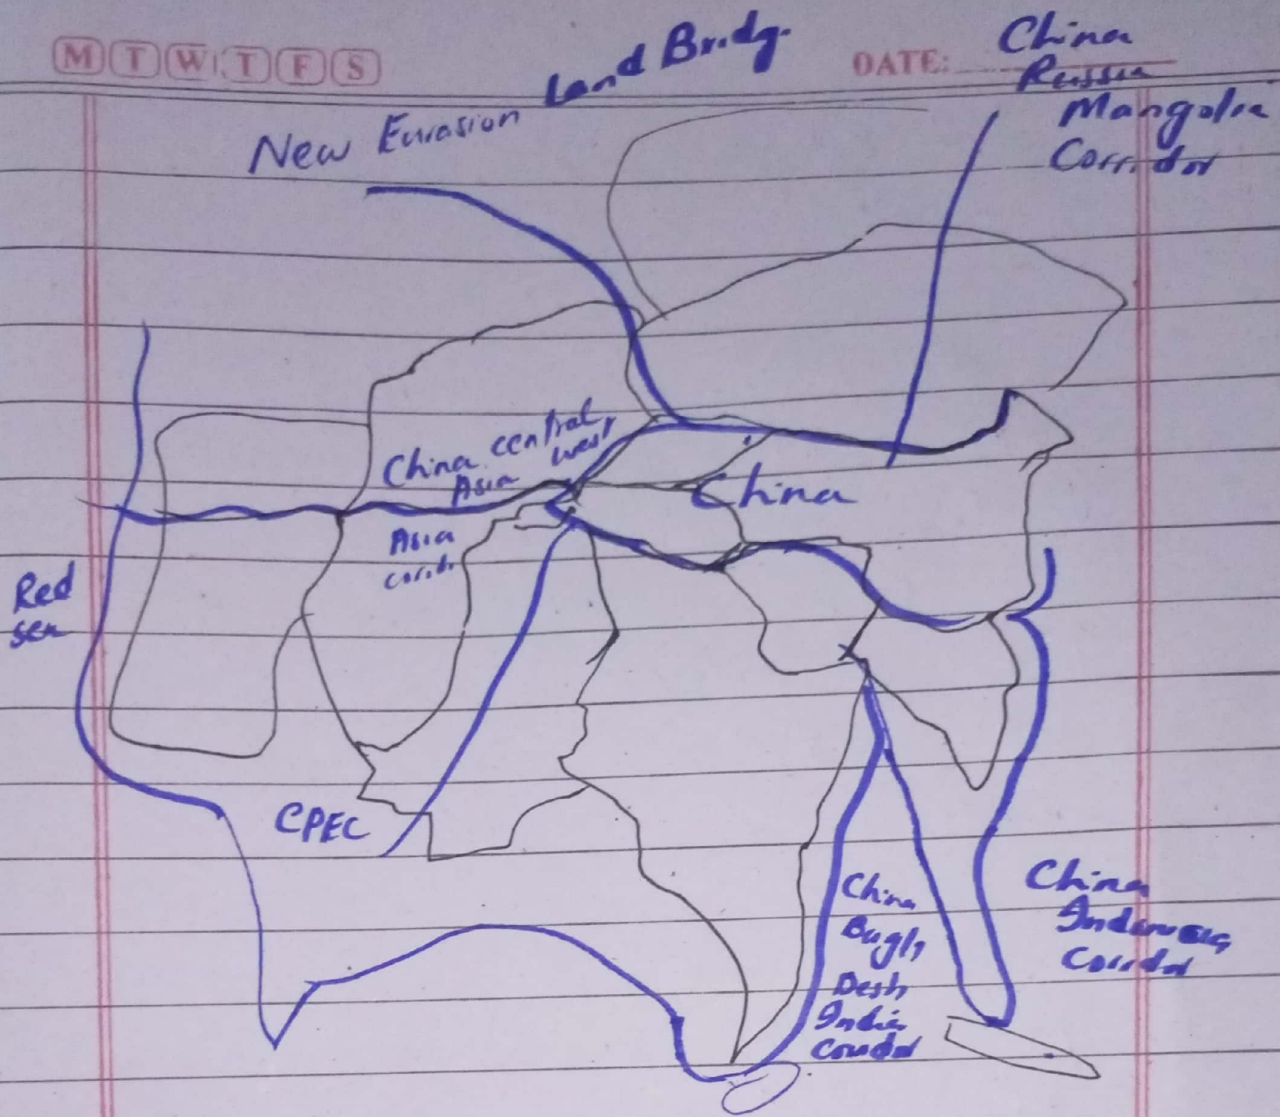 M T W T F S
DATE:
New Eurasion Land Bridg.
China
Russia
Mangolia
Corridor
China central
Asia west
Asia
corid.
China
Red
sea
CPEC
China
Bagla
Desh
India
Coridor
China
Corridor